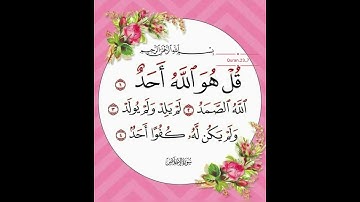 بِسْمِ اللَّهِ الرَّحْمَٰنِ الرَّحِيمِ
Quran.23.7
قُلْ هُوَ ٱللَّهُ أَحَدٌ ١
ٱللَّهُ ٱلصَّمَدُ ٢ لَمْ يَلِدْ وَلَمْ يُولَدْ ٣
وَلَمْ يَكُن لَّهُۥ كُفُوًا أَحَدٌۢ ٤
سورة الإخلاص